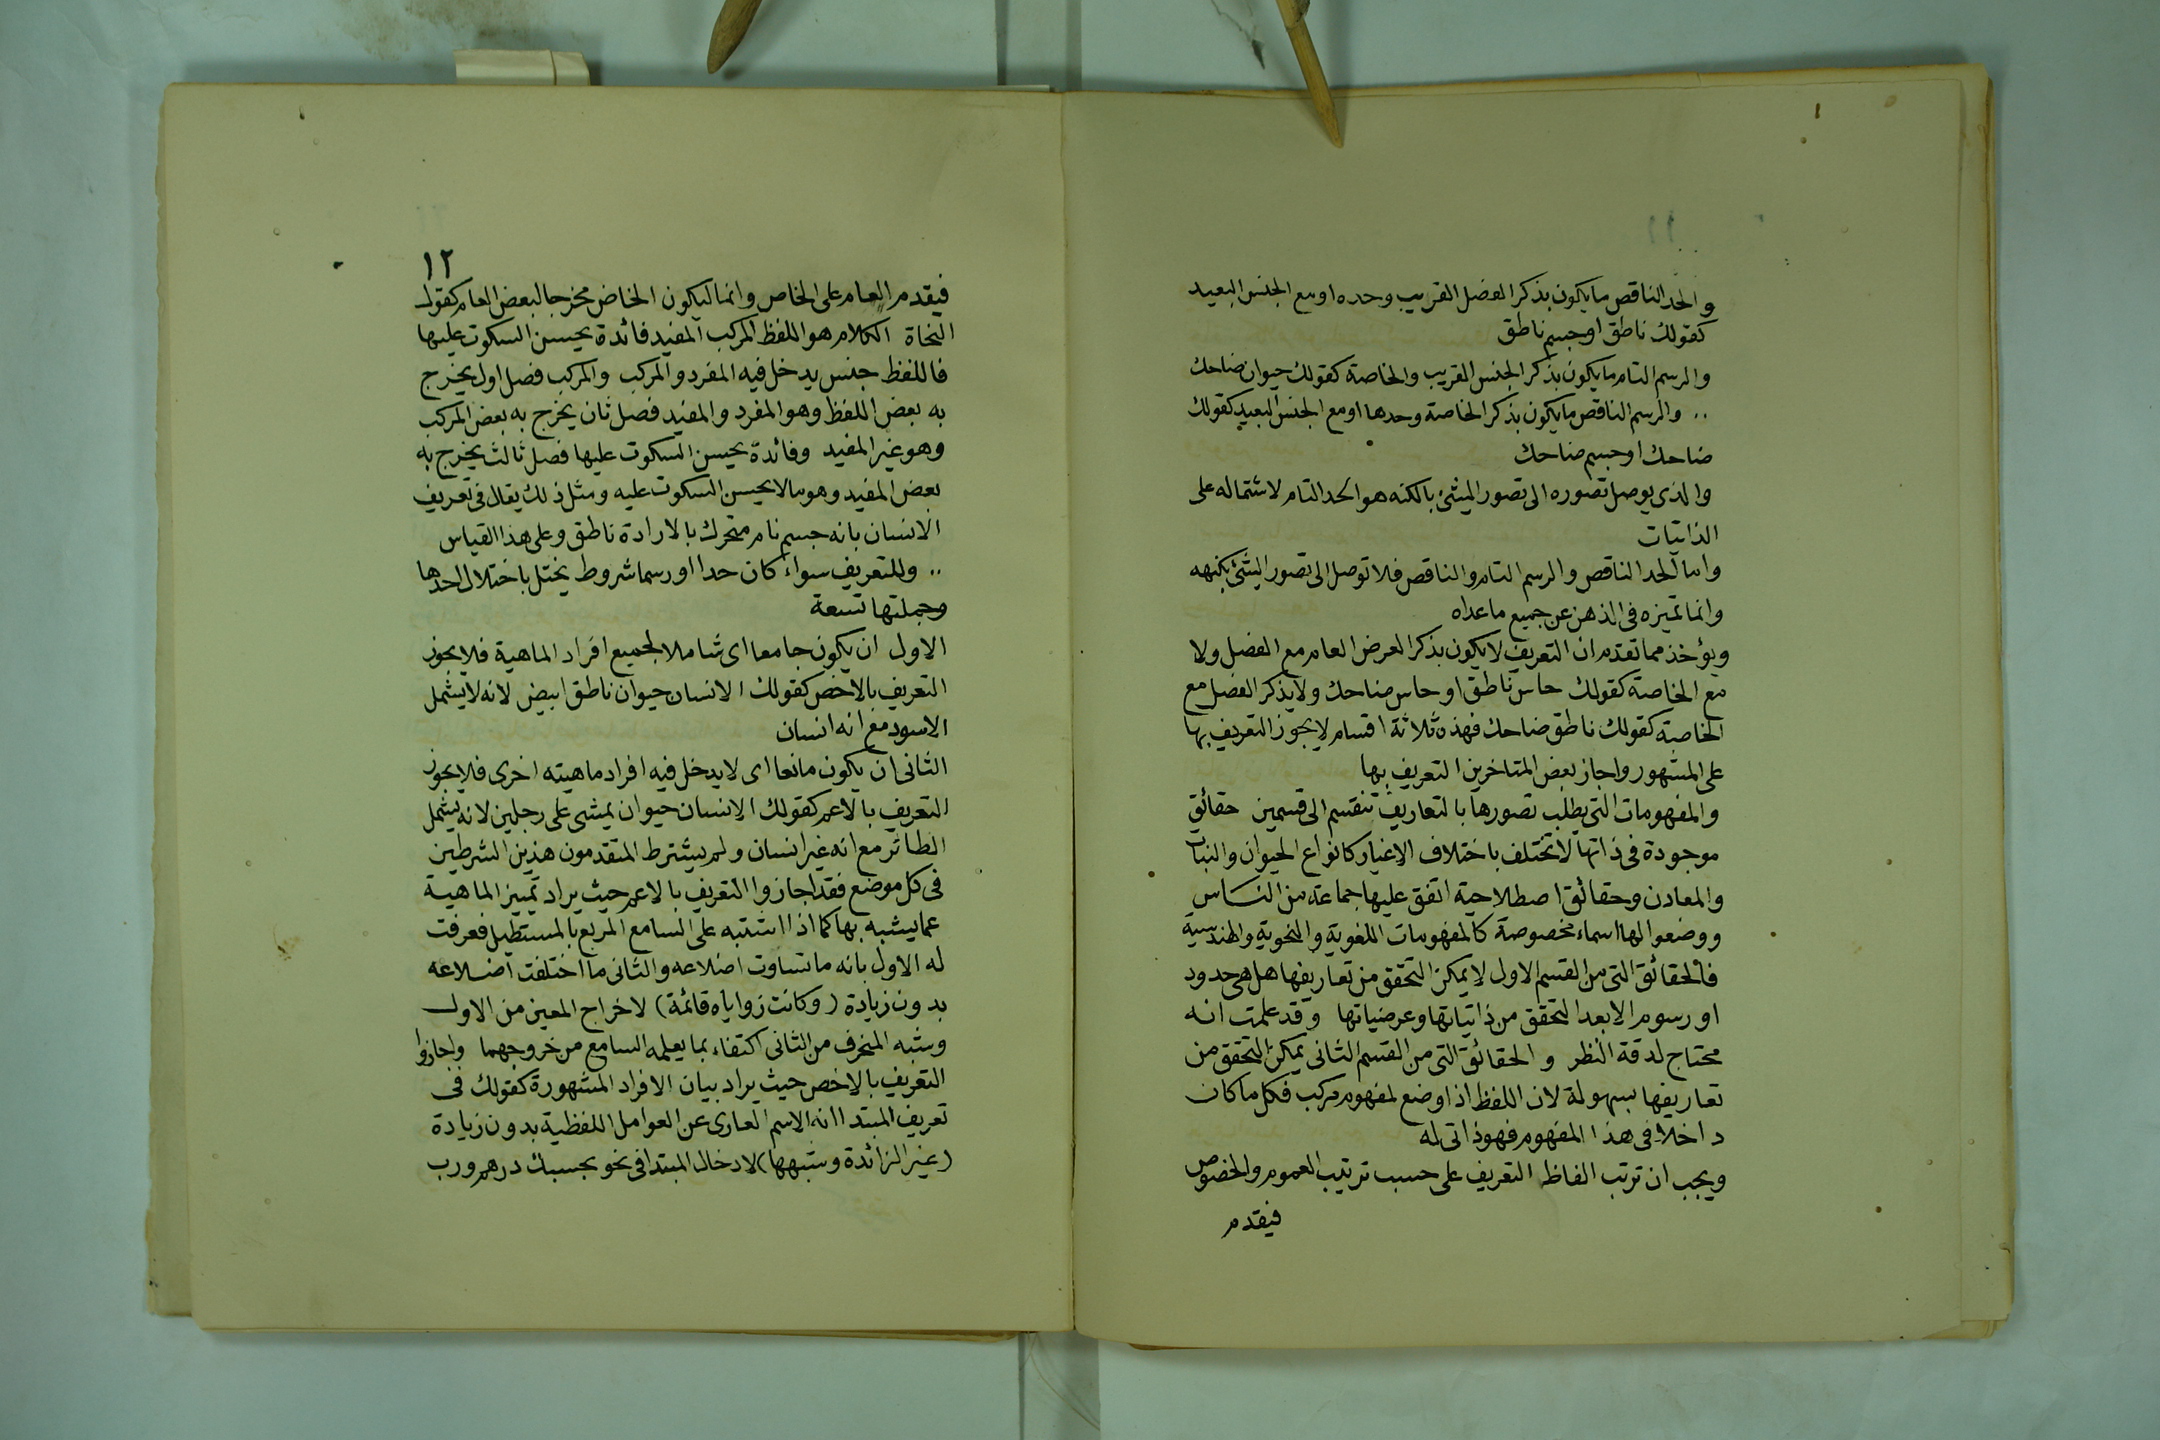 والحد الناقص ما يكون بذكر الفصل القريب وحده او مع الجنس البعيد
كقولك ناطق او جسم ناطق
والرسم التام ما يكون بذكر الجنس القريب والخاصة كقولك حيوان ضاحك
.. والرسم الناقص ما يكون بذكر الخاصة وحدها او مع الجنس البعيد كقولك
ضاحك او جسم ضاحك
والذى يوصل تصوره الى تصور الشئ بالكنه هو الحد التام لاشتماله على
الذاتيات
واما الحد الناقص والرسم التام والناقص فلا توصل الى تصور الشئ بكنهه
وانما تميزه فى الذهن عن جميع ما عداه
ويؤخذ مما تقدم ان التعريف لا يكون بذكر العرض العام مع الفصل ولا
مع الخاصة كقولك حاس ناطق او حاس ضاحك ولا يذكر الفصل مع
الخاصة كقولك ناطق ضاحك فهذه ثلاثة اقسام لا يجوز التعريف بها
على المشهور واجاز بعض المتاخرين التعريف بها
والمفهومات التى يطلب تصورها بالتعاريف تنقسم الى قسمين حقائق
موجودة فى ذاتها لا تختلف باختلاف الاعتبار كانواع الحيوان والنبات
والمعادن وحقائق اصطلاحية اتفق عليها جماعة من الناس
ووضعوا لها اسماء مخصوصة كالمفهومات اللغوية والنحوية والهندسية
فالحقائق التى من القسم الاول لا يمكن التحقق من تعاريفها هل هى حدود
او رسوم الا بعد التحقق من ذاتياتها وعرضياتها وقد علمت انه
محتاج لدقة النظر والحقائق التى من القسم الثانى يمكن التحقق من
تعاريفها بسهولة لان اللفظ اذا وضع لمفهوم مركب فكل ما كان
داخلا فى هذا المفهوم فهو ذاتى له
ويجب ان ترتب الفاظ التعريف على حسب ترتيب العموم والخصوص
فيقدم
١٢
فيقدم العام على الخاص وانما ليكون الخاص مخرجا لبعض العام كقول
النحاة الكلام هو اللفظ المركب المفيد فائدة يحسن السكوت عليها
فاللفظ جنس يدخل فيه المفرد والمركب والمركب فصل اول يخرج
به بعض اللفظ وهو المفرد والمفيد فصل ثان يخرج به بعض المركب
وهو غير المفيد وفائدة يحسن السكوت عليها فصل ثالث يخرج به
بعض المفيد وهو ما لا يحسن السكوت عليه ومثل ذلك يقال فى تعريف
الانسان بانه جسم نام متحرك بالارادة ناطق وعلى هذا القياس
.. وللتعريف سواء كان حدا او رسما شروط يختل باختلال احدها
وجملتها تسعة
الاول ان يكون جامعا اى شاملا لجميع افراد الماهية فلا يجوز
التعريف بالاخص كقولك الانسان حيوان ناطق ابيض لانه لا يشمل
الاسود مع انه انسان
الثانى ان يكون مانعا اى لا يدخل فيه افراد ماهيته اخرى فلا يجوز
التعريف بالاعم كقولك الانسان حيوان يمشى على رجلين لانه يشمل
الطائر مع انه غير انسان ولم يشترط المتقدمون هذين الشرطين
فى كل موضع فقد اجازوا التعريف بالاعم حيث يراد تمييز الماهية
عما يشبه بها كما اذا اشتبه على السامع المربع بالمستطيل فعرفت
له الاول بانه ما تساوت اضلاعه والثانى ما اختلفت اضلاعه
بدون زيادة (وكانت زواياه قائمة) لاخراج المعين من الاول
وشبه المنحرف من الثانى اكتفاء بما يعلمه السامع من خروجهما واجازوا
التعريف بالاخص حيث يراد بيان الافراد المشهورة كقولك فى
تعريف المبتدا انه الاسم العارى عن العوامل اللفظية بدون زيادة
(غير الزائدة وشبهها) لادخال المبتدا فى نحو بحسبك درهم ورب